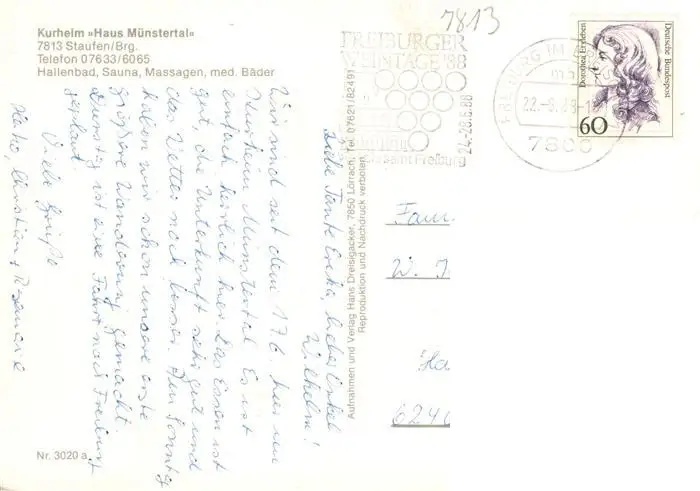 Kurheim »Haus Münstertal«
7813 Staufen/Brg.
Telefon 07633/6065
Hallenbad, Sauna, Massagen, med. Bäder
7813
FREIBURGER
WEINTAGE '88
24.-28.6.88
samt Freiburg
FREIBURG IM
22.-6.88
7800
Dorothea Erxleben
Deutsche Bundespost
60
Liebe Tante Erika, lieber Onkel
Wilhelm!
Wir sind seit dem 17.6. hier im
Kurheim Münstertal. Es ist
einfach herrlich hier. Das Essen ist
gut, die Unterkunft sehr gut und
das Wetter noch besser. Am Sonntag
haben wir schon unsere erste
größere Wanderung gemacht.
Dienstag ist eine Fahrt nach Freiburg
geplant.
Viele Grüße
Heiko, Christian + Rosemarie
Aufnahmen und Verlag Hans Dreisigacker, 7850 Lörrach, Tel. 07621/82491
Reproduktion und Nachdruck verboten.
Fam.
W. J
Ha
6240
Nr. 3020 a